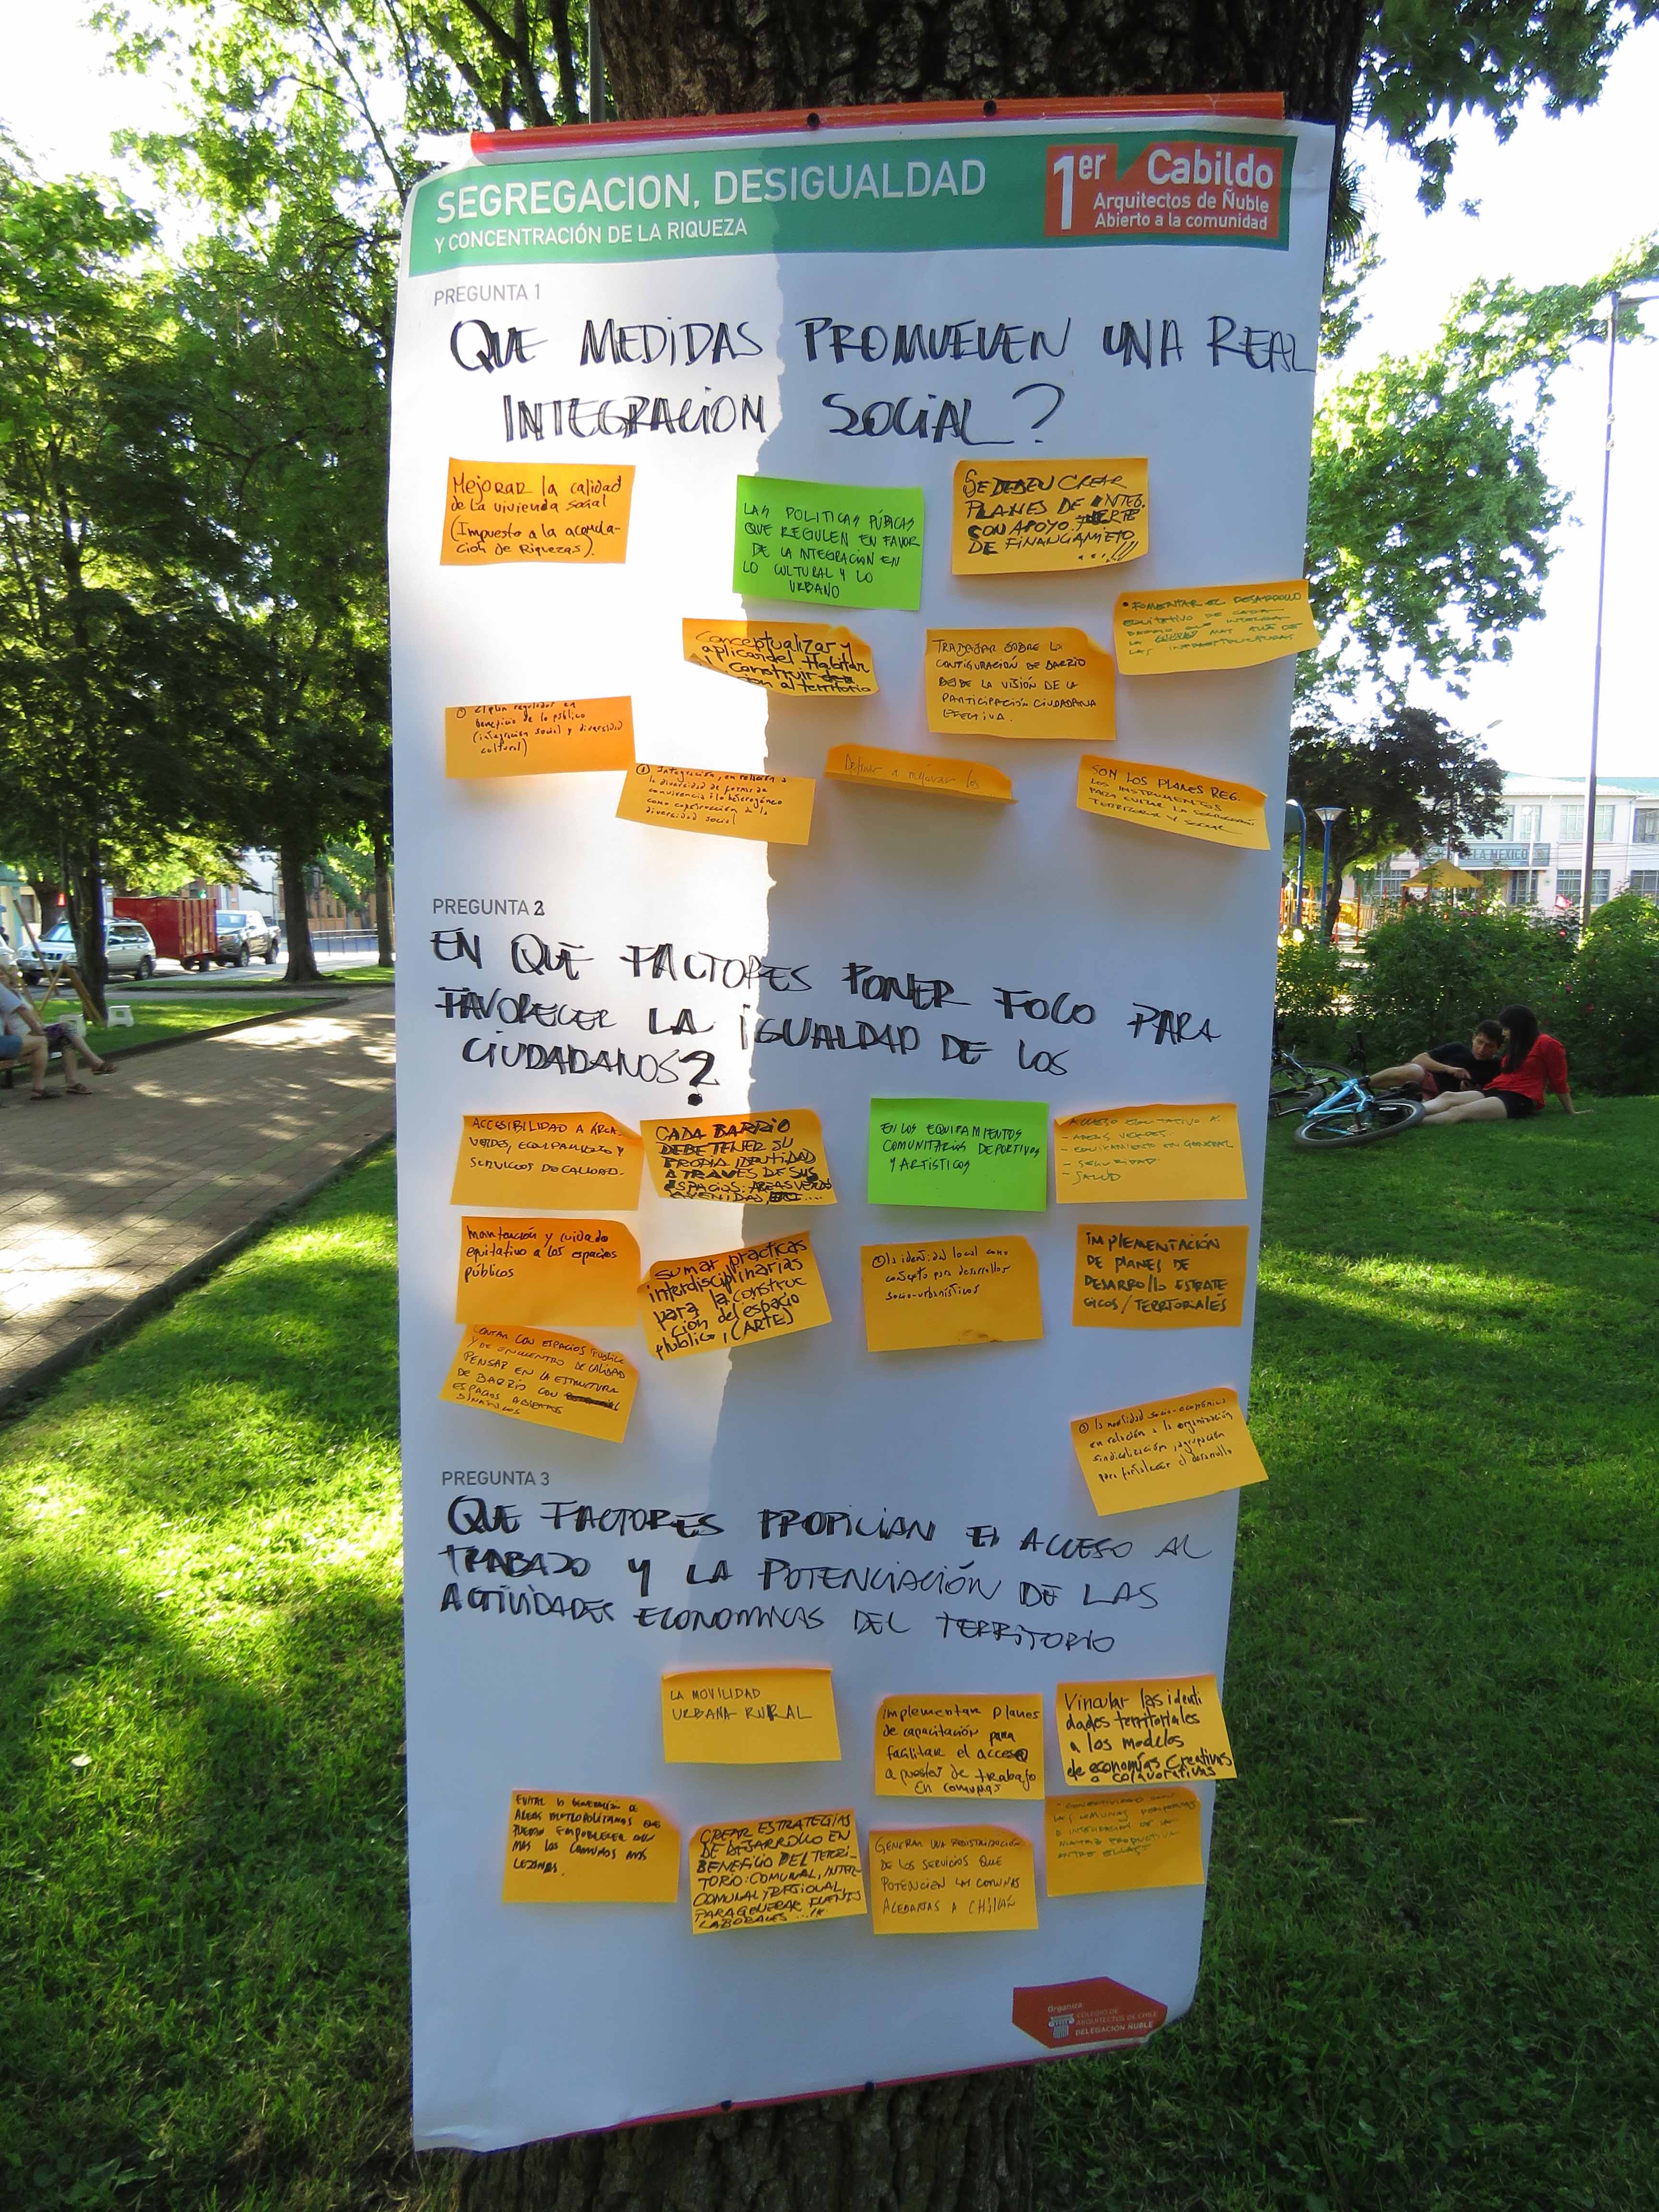 SEGREGACION, DESIGUALDAD
Y CONCENTRACIÓN DE LA RIQUEZA
1er Cabildo
Arquitectos de Ñuble
Abierto a la comunidad
PREGUNTA 1
QUE MEDIDAS PROMUEVEN UNA REAL
INTEGRACION SOCIAL?
Mejorar la calidad
de la vivienda social
(Impuesto a la acumula-
ción de Riquezas).
LAS POLITICAS PÚBICAS
QUE REGULEN EN FAVOR
DE LA INTEGRACION EN
LO CULTURAL Y LO
URBANO
SE DEBEN CREAR
PLANES DE INTEG.
CON APOYO FUERTE
DE FINANCIAMIETO
...!!!
• FOMENTAR EL DESARROLLO
EQUITATIVO DE CADA
LA CIUDAD MAS ALLA DE
LAS INFRAESTRUCTURAS
Conceptualizar y
aplicar del Habitar
al construir
al territorio
TRABAJAR SOBRE LA
CONFIGURACIÓN DE BARRIO
DESDE LA VISIÓN DE LA
PARTICIPACIÓN CIUDADANA
EFECTIVA.
El plan regulador en
beneficio de lo público
(integración social y diversidad
cultural)
① Integración, en relación a
la diversidad de formas de
convivencia y lo heterogéneo
como construcción de la
diversidad social
Definir a mejorar los
SON LOS PLANES REG.
LOS INSTRUMENTOS
PARA EVITAR LA SEGREGACIÓN
TERRITORIAL Y SOCIAL
PREGUNTA 2
EN QUE FACTORES PONER FOCO PARA
FAVORECER LA IGUALDAD DE LOS
CIUDADANOS?
ACCESIBILIDAD A AREAS
VERDES, EQUIPAMIENTO Y
SERVICIOS DE CALIDAD.
CADA BARRIO
DEBE TENER SU
PROPIA IDENTIDAD
A TRAVES DE SUS
ESPACIOS: AREAS VERDES
AVENIDAS, ETC....
EN LOS EQUIPAMIENTOS
COMUNITARIOS DEPORTIVOS
Y ARTÍSTICOS
ACCESO EQUITATIVO A:
- AREAS VERDES
- EQUIPAMIENTO EN GENERAL
- SEGURIDAD
- SALUD
mantención y cuidado
equitativo a los espacios
públicos
sumar practicas
interdisciplinarias
para la construc
ción del espacio
público, (ARTE)
① la identidad local como
concepto para desarrollos
socio-urbanísticos
IMPLEMENTACIÓN
DE PLANES DE
DESARROLLO ESTRATE
GICOS/TERRITORIALES
CONTAR CON ESPACIOS PUBLICO
Y DE ENCUENTRO DE CALIDAD
PENSAR EN LA ESTRUCTURA
DE BARRIO CON
ESPACIOS ABIERTOS
DINAMICOS
② la movilidad socio-económica
en relación a la organización
sindicalización, agrupación
para fortalecer el desarrollo
PREGUNTA 3
QUE FACTORES PROPICIAN El ACCESO AL
TRABAJO Y LA POTENCIACIÓN DE LAS
ACTIVIDADES ECONOMICAS DEL TERRITORIO
LA MOVILIDAD
URBANA RURAL
Implementar Planes
de capacitación para
facilitar el acceso
a puestos de trabajo
En comunas
Vincular las identi
dades territoriales
a los modelos
de economías Creativas
o colavorativas
EVITAR la GENERACIÓN DE
AREAS METROPOLITANAS QUE
PUEDAN EMPOBRECER AUN
MAS LAS COMUNAS MAS
LEJANAS.
CREAR ESTRATEGIAS
DE DESARROLLO EN
BENEFICIO DEL TERRI-
TORIO: COMUNAL, INTER-
COMUNAL, REGIONAL,
PARA GENERAR FUENTES
LABORALES ...!!
GENERAR UNA REDISTRIBUCIÓN
DE LOS SERVICIOS QUE
POTENCIEN LAS COMUNAS
ALEDAÑAS A CHILLÁN
- CONECTIVIDAD
LAS COMUNAS PERIFERICAS
E INTEGRACION DE LA
MATRIZ PRODUCTIVA
ENTRE ELLAS
Organiza:
COLEGIO DE
ARQUITECTOS DE CHILE
DELEGACIÓN ÑUBLE
LA MEXICO